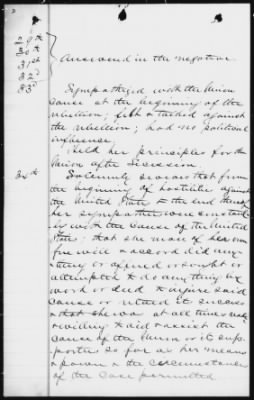 29th
30th
31st
32d
33d
Answered in the negative.
Sympathized with the Union
cause at the beginning of the
rebellion; felt & talked against
the rebellion; had no political
influence.
Held her principles for the
Union after secession.
34th
Solemnly swears that from
the beginning of hostilities against
the United States to the end thereof
her sympathies were constant-
ly with the cause of the United
States; that she never of her own
free will & accord did any-
thing or offered or sought or
attempted to do anything by
word or deed to injure said
cause or retard its success
& that she was at all times ready
& willing to aid & assist the
cause of the Union or its sup-
porters so far as her means
& power & the circumstances
of the case permitted.